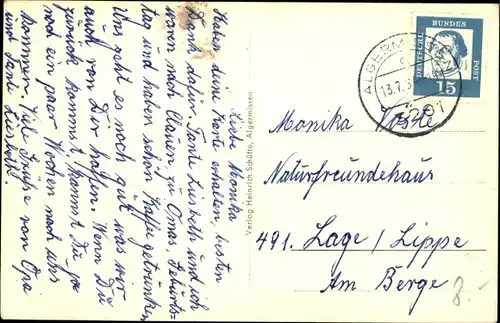 Liebe Monika
Haben deine Karte erhalten, besten
Dank dafür. Tante Liesbeth und ich
waren nach Clauen zu Omas Geburts-
tag und haben schön Kaffe getrunken
Uns geht es noch gut was wir
auch von Dir hoffen. Wenn Du
zurück kommst, kannst Du ja
noch ein paar Wochen nach uns
kommen. Viel Grüße von Opa
und Tante Liesbeth.
Verlag Heinrich Schütte, Algermissen
DEUTSCHE
BUNDES
POST
15
ALGERM
13.7.6
3201
Monika
Naturfreundehaus
491. Lage/Lippe
Am Berge
8.-